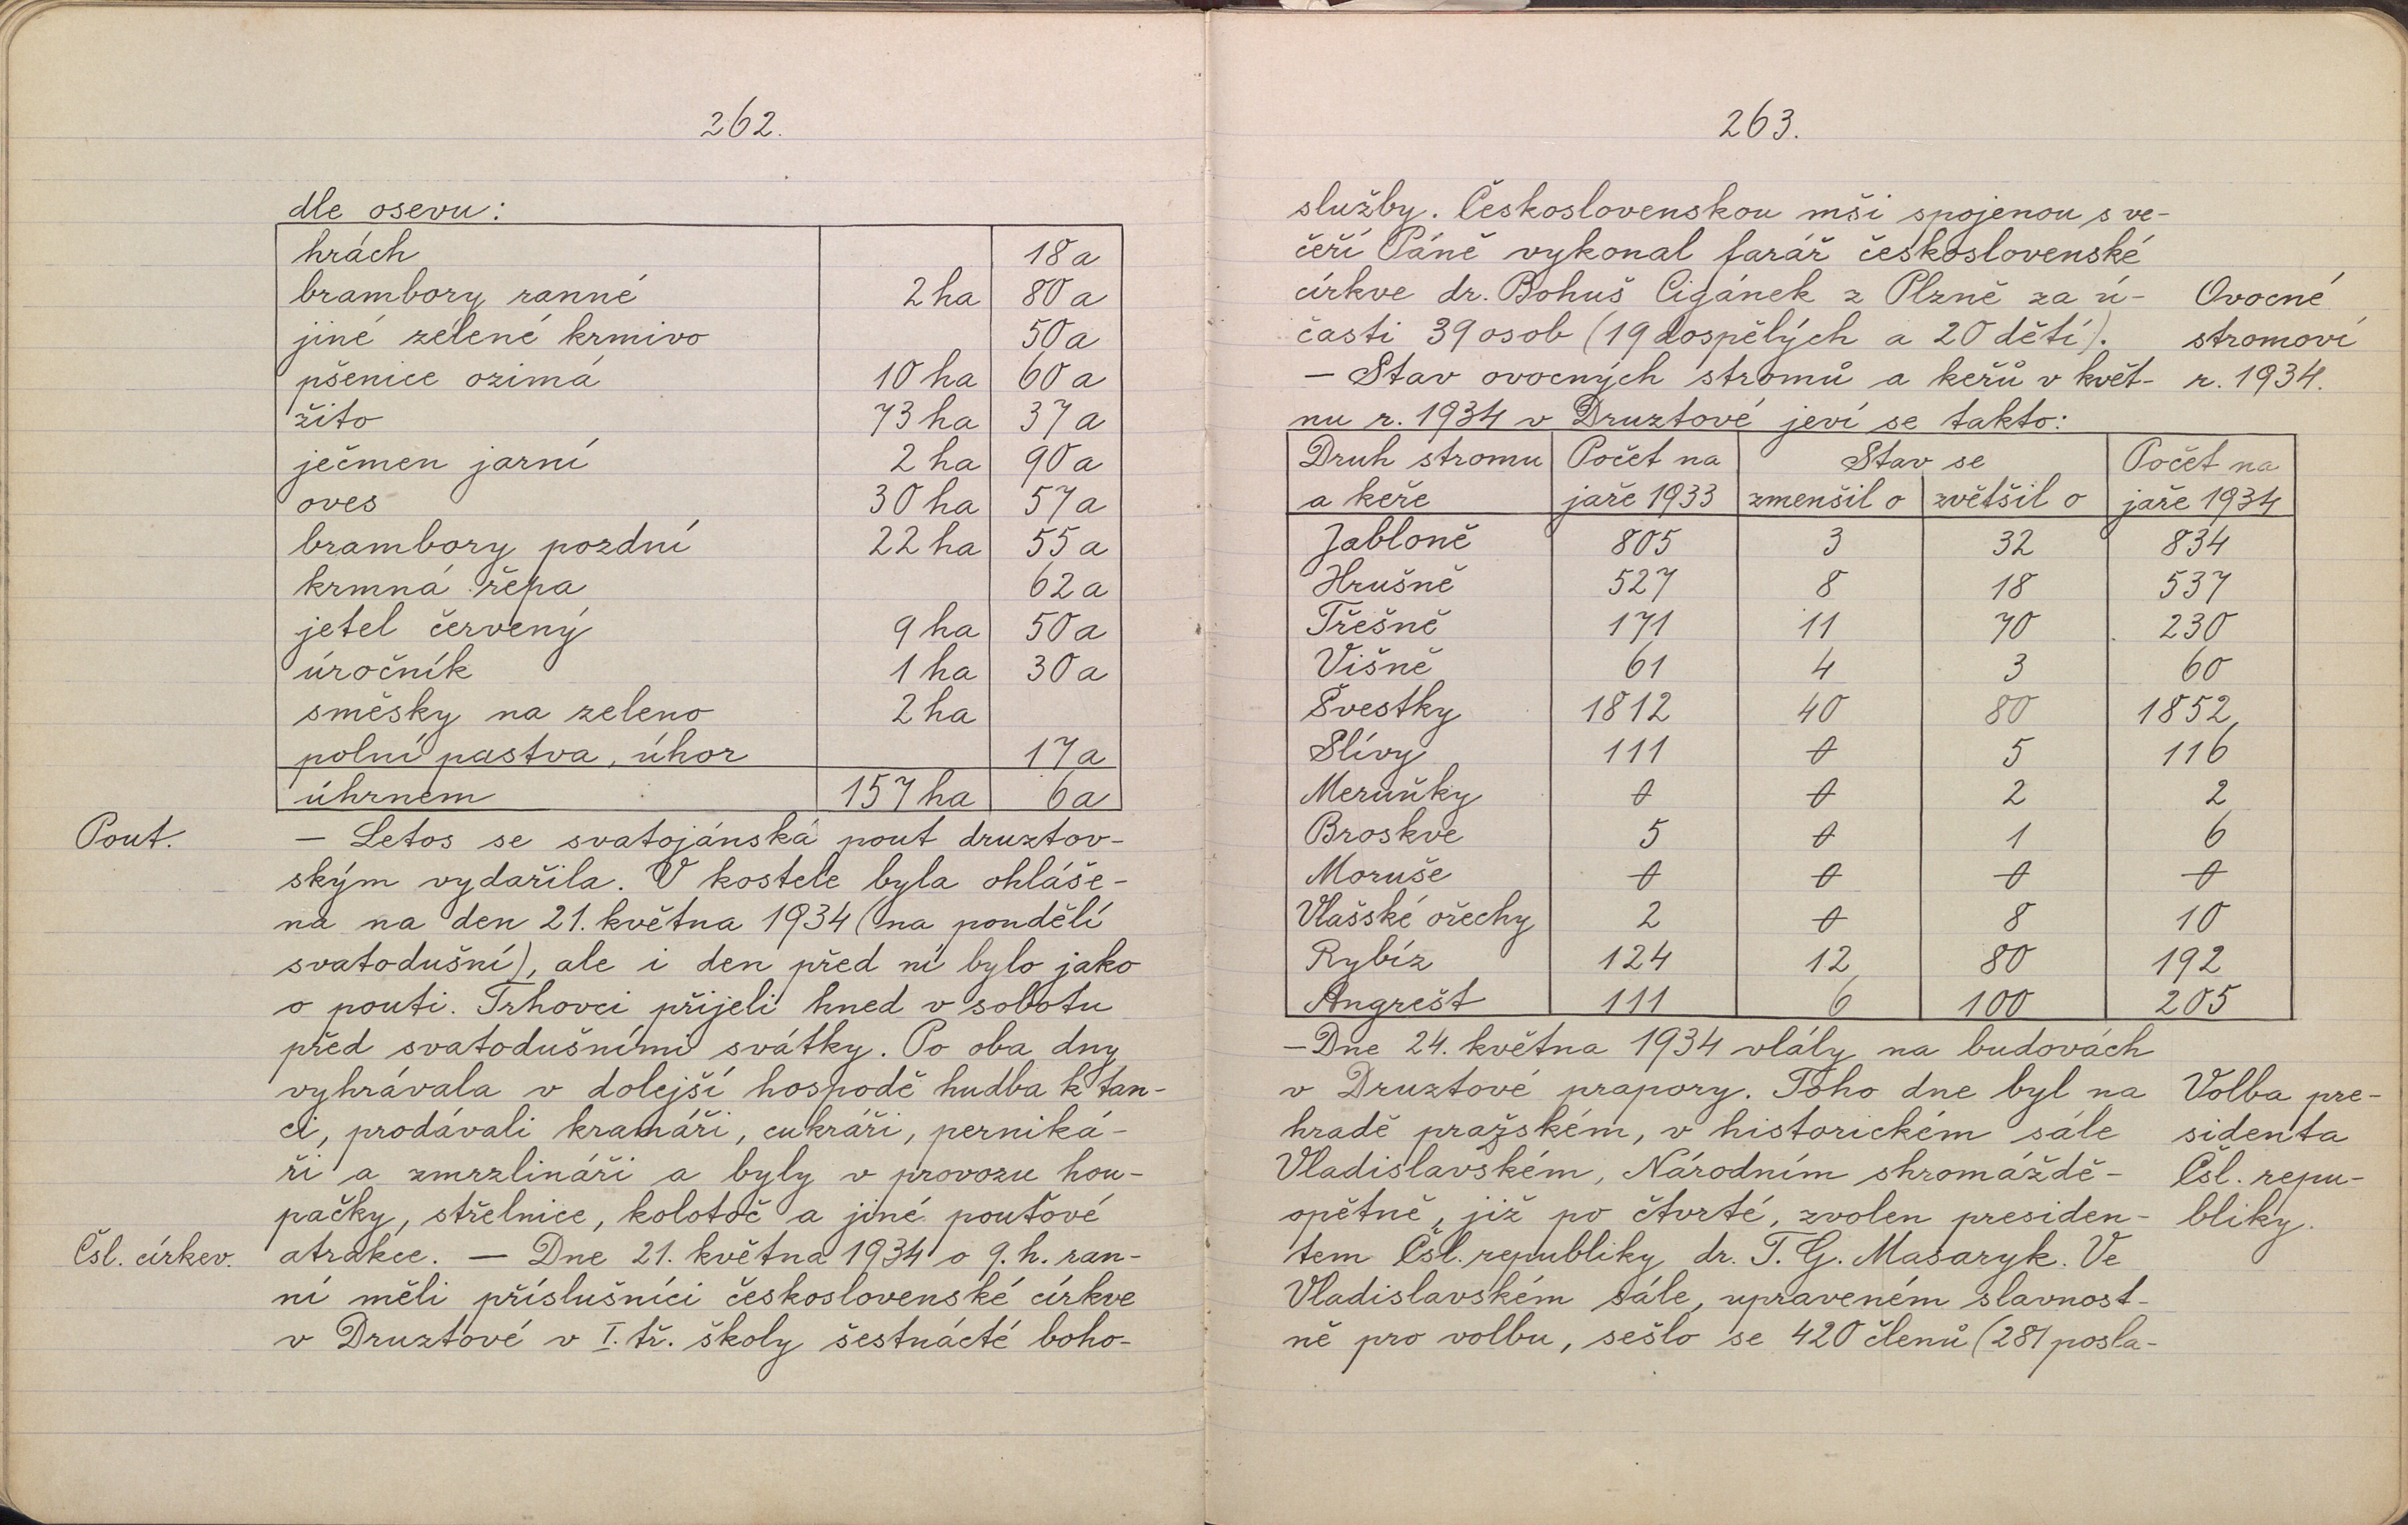 262.
dle osevu:
hrách 18 a
brambory ranné 2 ha 80 a
jiné zelené krmivo 50 a
pšenice ozimá 10 ha 60 a
žito 73 ha 37 a
ječmen jarní 2 ha 90 a
oves 30 ha 57 a
brambory pozdní 22 ha 55 a
krmná řepa 62 a
jetel červený 9 ha 50 a
úročník 1 ha 30 a
směsky na zeleno 2 ha
polní pastva, úhor 17 a
úhrnem 157 ha 6 a
Pout.
— Letos se svatojánská pout druztov-
ským vydařila. V kostele byla ohláše-
na na den 21. května 1934 (na pondělí
svatodušní), ale i den před ní bylo jako
o pouti. Trhovci přijeli hned v sobotu
před svatodušními svátky. Po oba dny
vyhrávala v dolejší hospodě hudba k tan-
ci, prodávali kramáři, cukráři, perniká-
ři a zmrzlináři a byly v provozu hou-
pačky, střelnice, kolotoč a jiné pouťové
Čsl. církev.
atrakce. — Dne 21. května 1934 o 9. h. ran-
ní měli příslušníci československé církve
v Druztové v I. tř. školy šestnácté boho-
263.
služby. Československou mši spojenou s ve-
čeří Páně vykonal farář československé
církve dr. Bohuš Cigánek z Plzně za ú-
časti 39 osob (19 dospělých a 20 dětí).
Ovocné
stromoví
r. 1934.
— Stav ovocných stromů a keřů v květ-
nu r. 1934 v Druztové jeví se takto:
Druh stromu Počet na Stav se Počet na
a keře jaře 1933 zmenšil o zvětšil o jaře 1934
Jabloně 805 3 32 834
Hrušně 527 8 18 537
Třešně 171 11 70 230
Višně 61 4 3 60
Švestky 1812 40 80 1852
Slívy 111 0 5 116
Meruňky 0 0 2 2
Broskve 5 0 1 6
Moruše 0 0 0 0
Vlašské ořechy 2 0 8 10
Rybíz 124 12 80 192
Angrešt 111 6 100 205
— Dne 24. května 1934 vlály na budovách
v Druztové prapory. Toho dne byl na
hradě pražském, v historickém sále
Vladislavském, Národním shromáždě-
opětně, již po čtvrté, zvolen presiden-
tem Čsl. republiky dr. T. G. Masaryk. Ve
Vladislavském sále, upraveném slavnost-
ně pro volbu, sešlo se 420 členů (281 posla-
Volba pre-
sidenta
Čsl. repu-
bliky.